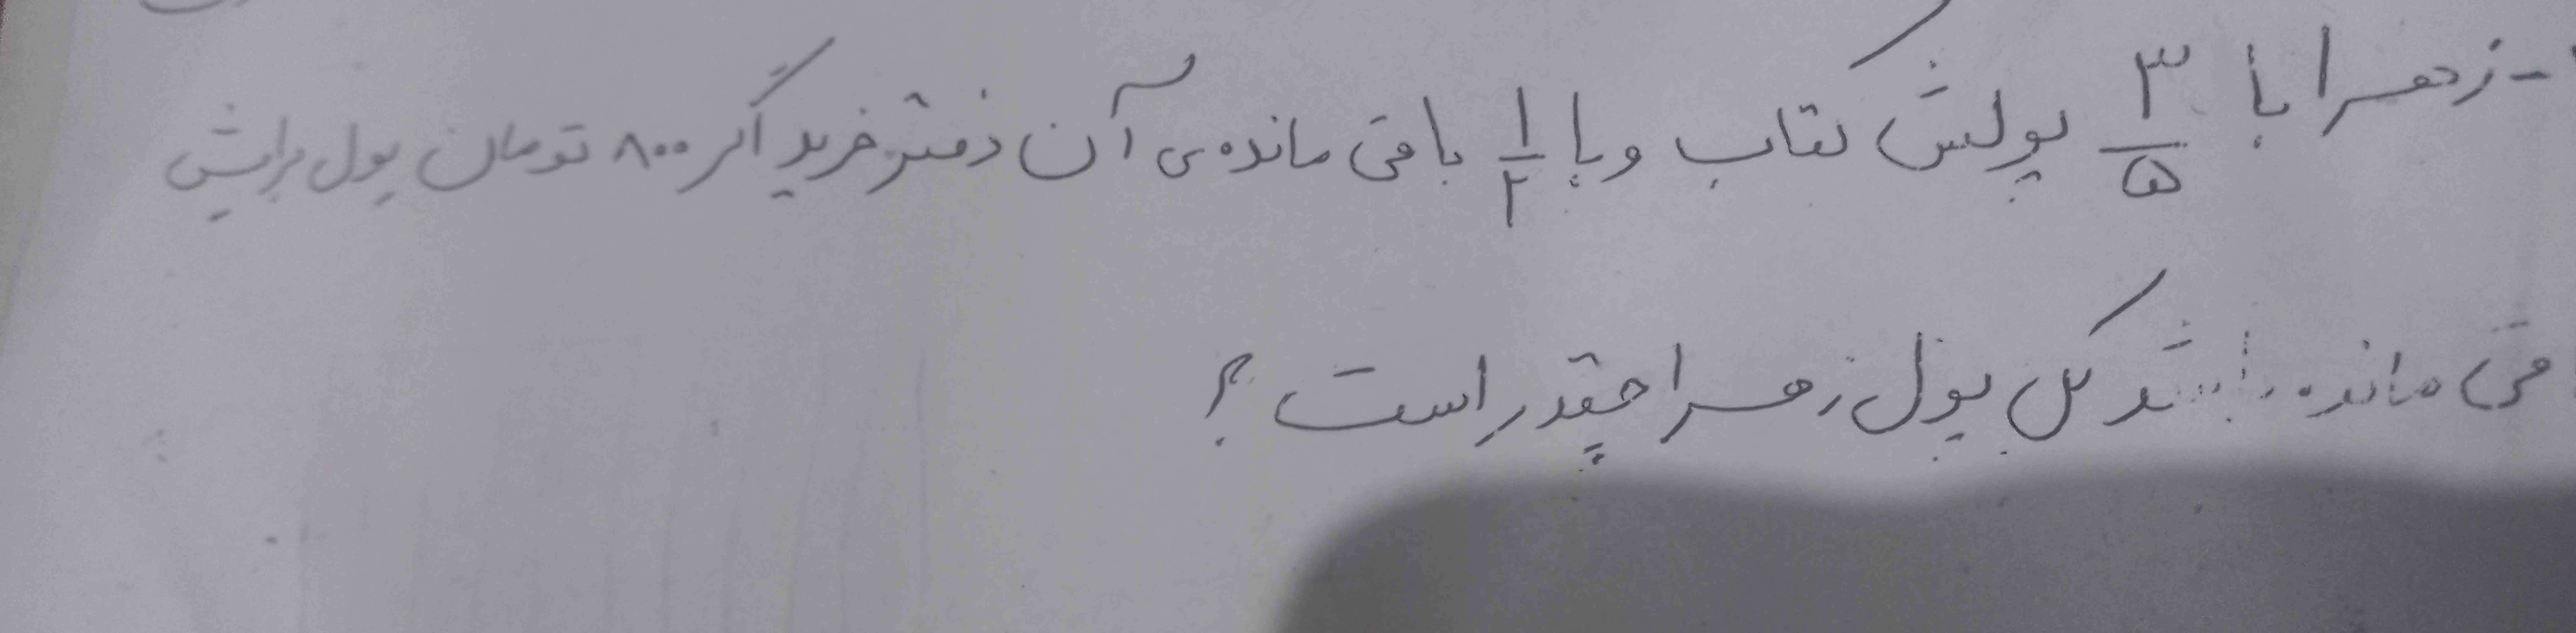 - زهرا با ۳/۵ پولش کتاب و با ۱/۲ باقی مانده‌ی آن دفتر خرید اگر ۸۰۰ تومان پول برایش
قی مانده باشد کل پول زهرا چقدر است ؟